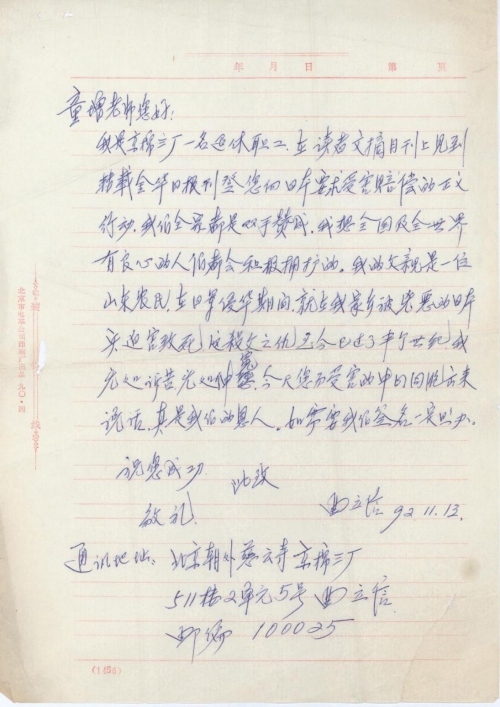 年 月 日 第 页
童增老师您好:
我是京棉三厂一名退休职工,在读者文摘月刊上见到
转载金华日报刊登您向日本要求受害赔偿的正义
行动,我们全家都是双手赞成,我想全国及全世界
有良心的人们都会积极拥护的。我的父亲是一位
山东农民,在日军侵华期间,就在我家乡被凶恶的日本
兵迫害致死,这杀父之仇至今已过了半个世纪,我
无处诉苦无处伸冤,今天您为受害的中国同胞出来
说话,真是我们的恩人。如需要我们签名一定照办。
祝您成功
此致
敬礼
曲立信 92.11.13.
通讯地址:北京朝外慈云寺京棉三厂
511楼2单元5号 曲立信
邮编 100025
(1456)